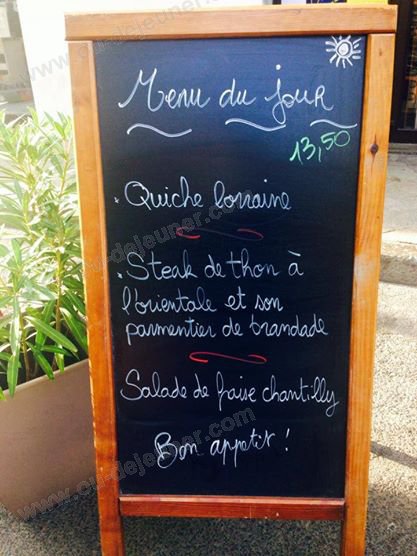 Menu du jour
13,50
. Quiche lorraine
. Steak de thon à
l'orientale et son
parmentier de brandade
Salade de fraise chantilly
Bon appetit !
www.ou-dejeuner.com
www.ou-dejeuner.com
www.ou-dejeuner.com